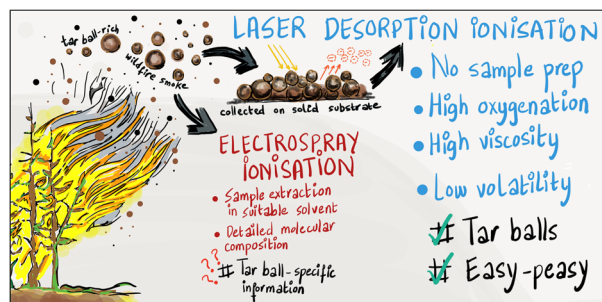 LASER DESORPTION IONISATION
tar ball-rich
wildfire smoke
collected on solid substrate
• No sample prep
• High oxygenation
• High viscosity
• Low volatility
# Tar balls
# Easy-peasy
ELECTROSPRAY
IONISATION
• Sample extraction
in suitable solvent
• Detailed molecular
composition
??? # Tar ball-specific
information